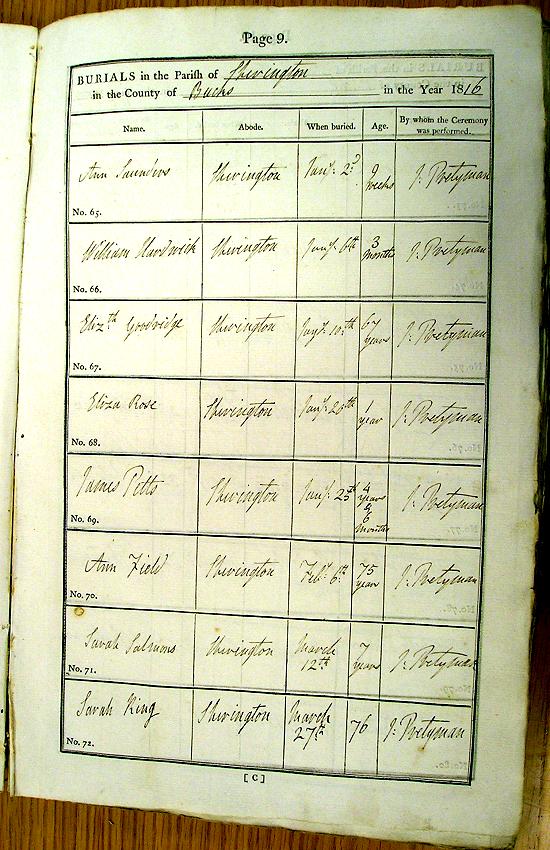 Page 9.
BURIALS in the Parish of Sherington
in the County of Bucks in the Year 1816
Name. Abode. When buried. Age. By whom the Ceremony was performed.
Ann Saunders Sherington Jany. 2d 9 weeks J: Pretyman
No. 65.
William Hardwick Sherington Jany. 6th 3 months J: Pretyman
No. 66.
Elizth Goodridge Sherington Jany. 10th 67 years J: Pretyman
No. 67.
Eliza Rose Sherington Jany. 20th 1 year J: Pretyman
No. 68.
James Pitts Sherington Jany. 25th 4 years & 6 months J: Pretyman
No. 69.
Ann Field Sherington Feby. 6th 75 year J: Pretyman
No. 70.
Sarah Salmons Sherington March 12th 7 years J: Pretyman
No. 71.
Sarah King Sherington March 27th 76 J: Pretyman
No. 72.
[C]